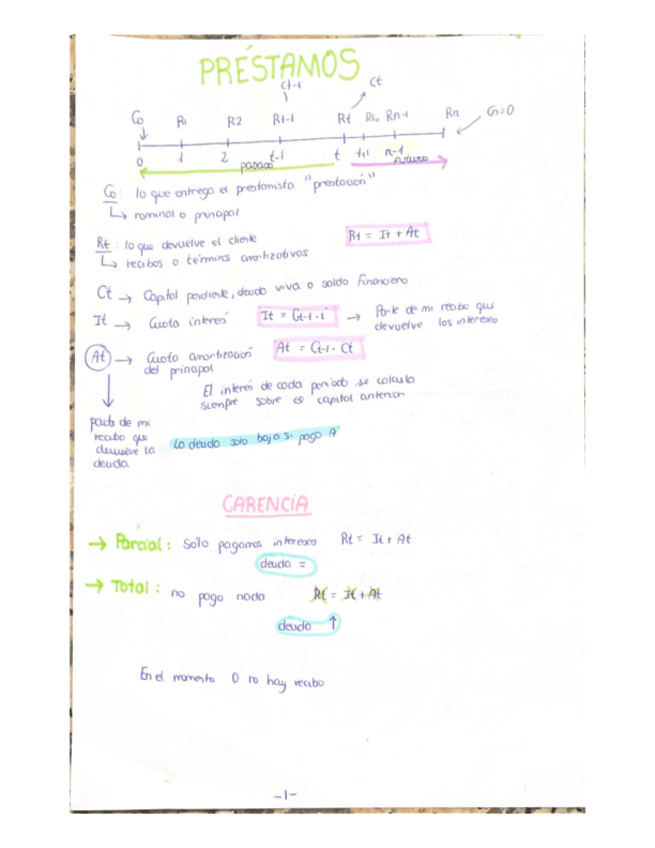 PRÉSTAMOS
Ct-1 Ct
Co R1 R2 Rt-1 Rt Rt+1 Rn-1 Rn Cn=0
0 1 2 t-1 t t+1 n-1
pasado futuro
Co: lo que entrega el prestamista "prestación"
↳ nominal o principal
Rt: lo que devuelve el cliente Rt = It + At
↳ recibos o términos amortizativos
Ct → Capital pendiente, deuda viva o saldo financiero
It → Cuota interés It = Ct-1 · i → Parte de mi recibo que
devuelve los intereses
At → Cuota amortización At = Ct-1 - Ct
del principal
El interés de cada periodo se calcula
siempre sobre el capital anterior
parte de mi
recibo que
devuelve la
deuda
La deuda solo baja si pago A
CARENCIA
→ Parcial: Sólo pagamos intereses Rt = It + At
deuda =
→ Total: no pago nada Rt = It + At
deuda ↑
En el momento 0 no hay recibo
-1-